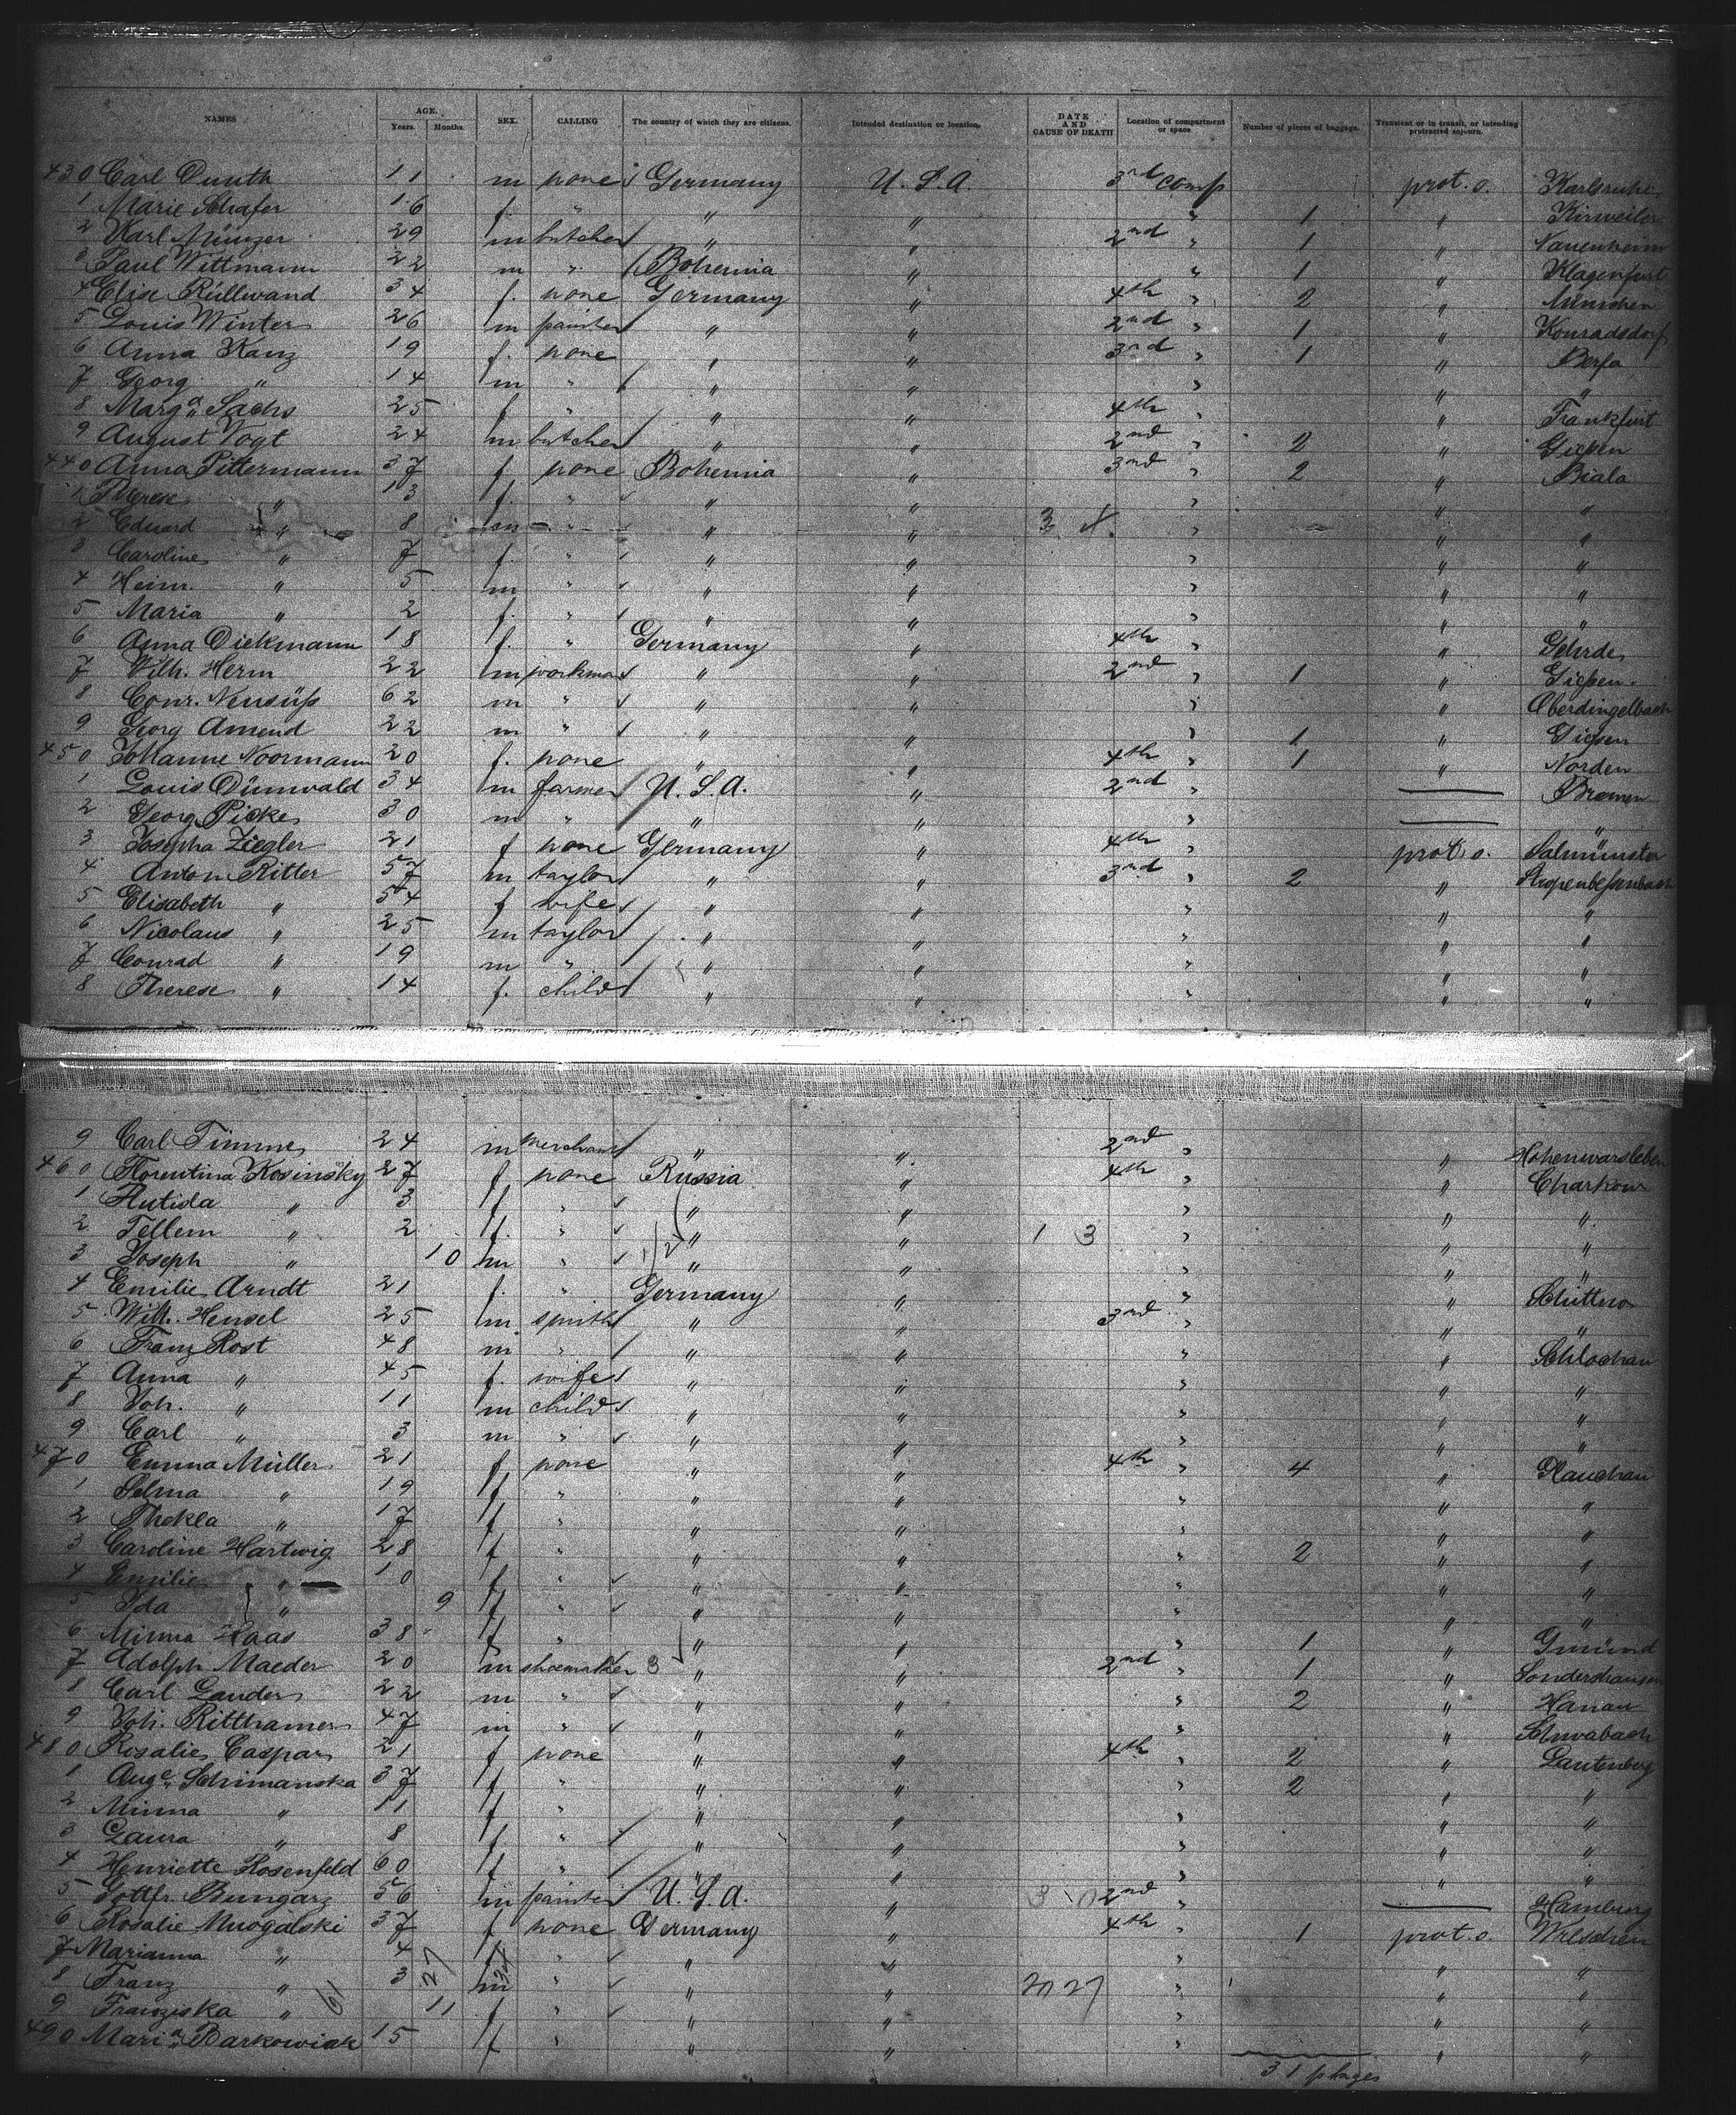 NAMES AGE. Years. Months. SEX. CALLING The country of which they are citizens. Intended destination or location. DATE AND CAUSE OF DEATH Location of compartment or space Number of pieces of baggage. Transient or in transit, or intending protracted sojourn.
430 Carl 11 m none Germany U.S.A. 3rd comp prot. s. Karlsruhe
1 Marie Schafer 16 f. " " " " 1 " Kirweiler
2 Karl Münzer 29 m butcher " " 2nd " 1 " Nauenheim
3 Paul Wittmann 22 m " Bohemia " " 1 " Klagenfurt
4 Elise Rüllwand 34 f. none Germany " 4th " 2 " München
5 Louis Winter 26 m painter " " 2nd " 1 " Konradsdorf
6 Anna Kanz 19 f. none " " 3rd " 1 " Berfa
7 Georg " 14 m " " " " " "
8 Marga Sachs 25 f. " " " 4th " " Frankfurt
9 August Vogt 24 m butcher " " 2nd " 2 " Gießen
440 Anna Pittermann 37 f. none Bohemia " 3rd " 2 " Biala
1 Therese " 13 f. " " " " " "
2 Eduard " 8 m " " " " " "
3 Caroline " 7 f. " " " " " "
4 Heinr. " 5 m " " " " " "
5 Maria " 2 f. " " " " " "
6 Anna Diekmann 18 f. " Germany " 4th " " Gehrde
7 Wilh. Herm 22 m workman " " 2nd " 1 " Gießen.
8 Conr. Neusüß 62 m " " " " " Oberdingelbach
9 Georg Amend 22 m " " " " 1 " Gießen
450 Johanne Noormann 20 f. none " " 4th " 1 " Norden
1 Louis Dünwald 34 m farmer U.S.A. " 2nd " — Bremen
2 Georg Pickes 30 m " " " " — "
3 Josepha Ziegler 21 f none Germany " 4th " prot. s. Salmünster
4 Anton Ritter 57 m taylor " " 3rd " 2 "
5 Elisabeth " 54 f wife " " " " "
6 Nicolaus " 25 m taylor " " " " "
7 Conrad " 19 m " " " " " "
8 Therese " 14 f. child " " " " "
9 Carl Timme 24 m merchant " " 2nd " " Hohenwarsleben
460 Florentina Kosinsky 27 f none Russia " 4th " " Charkow
1 Hutida " 3 f. " " " " " "
2 Tellem " 2 f. " " " 1 3 " " "
3 Joseph " 10 m " " " " " "
4 Emilie Arndt 21 f. " Germany " " " Schüttno
5 Wilh. Hensel 25 m smith " " 3rd " " "
6 Franz Rost 48 m " " " " " Schlochau
7 Anna " 45 f. wife " " " " "
8 Joh. " 11 m child " " " " "
9 Carl " 3 m " " " " " "
470 Emma Müller 21 f none " " 4th " 4 " Glauchau
1 Selma " 19 f " " " " " "
2 Thekla " 17 f " " " " " "
3 Caroline Hartwig 28 f " " " " 2 " "
4 Emilie " 10 f " " " " " "
5 Ida " 9 f " " " " " "
6 Minna Haas 38 f " " " " 1 " Gmünd
7 Adolph Maeder 20 m shoemaker " " 2nd " 1 " Sondershausen
8 Carl Lander 22 m " " " " 2 " Hanau
9 Joh. Ritthamer 47 m " " " " " Schwabach
480 Rosalie Caspar 21 f none " " 4th " 2 " Lautenberg
1 Auge Schimanska 37 f " " " " 2 " "
2 Minna " 11 f " " " " " "
3 Laura " 8 f " " " " " "
4 Henriette Rosenfeld 60 f " " " " " "
5 Gottfr. Bungarz 56 m painter U.S.A. " 2nd " — Hamburg
6 Rosalie Muogalski 37 f none Germany " 4th " 1 prot. s. Wreschen
7 Marianna " 4 f " " " " " "
8 Franz " 3 m " " " " " "
9 Franziska " 11 f " " " " " "
490 Maria Barkowiak 15 f " " " " " "
31